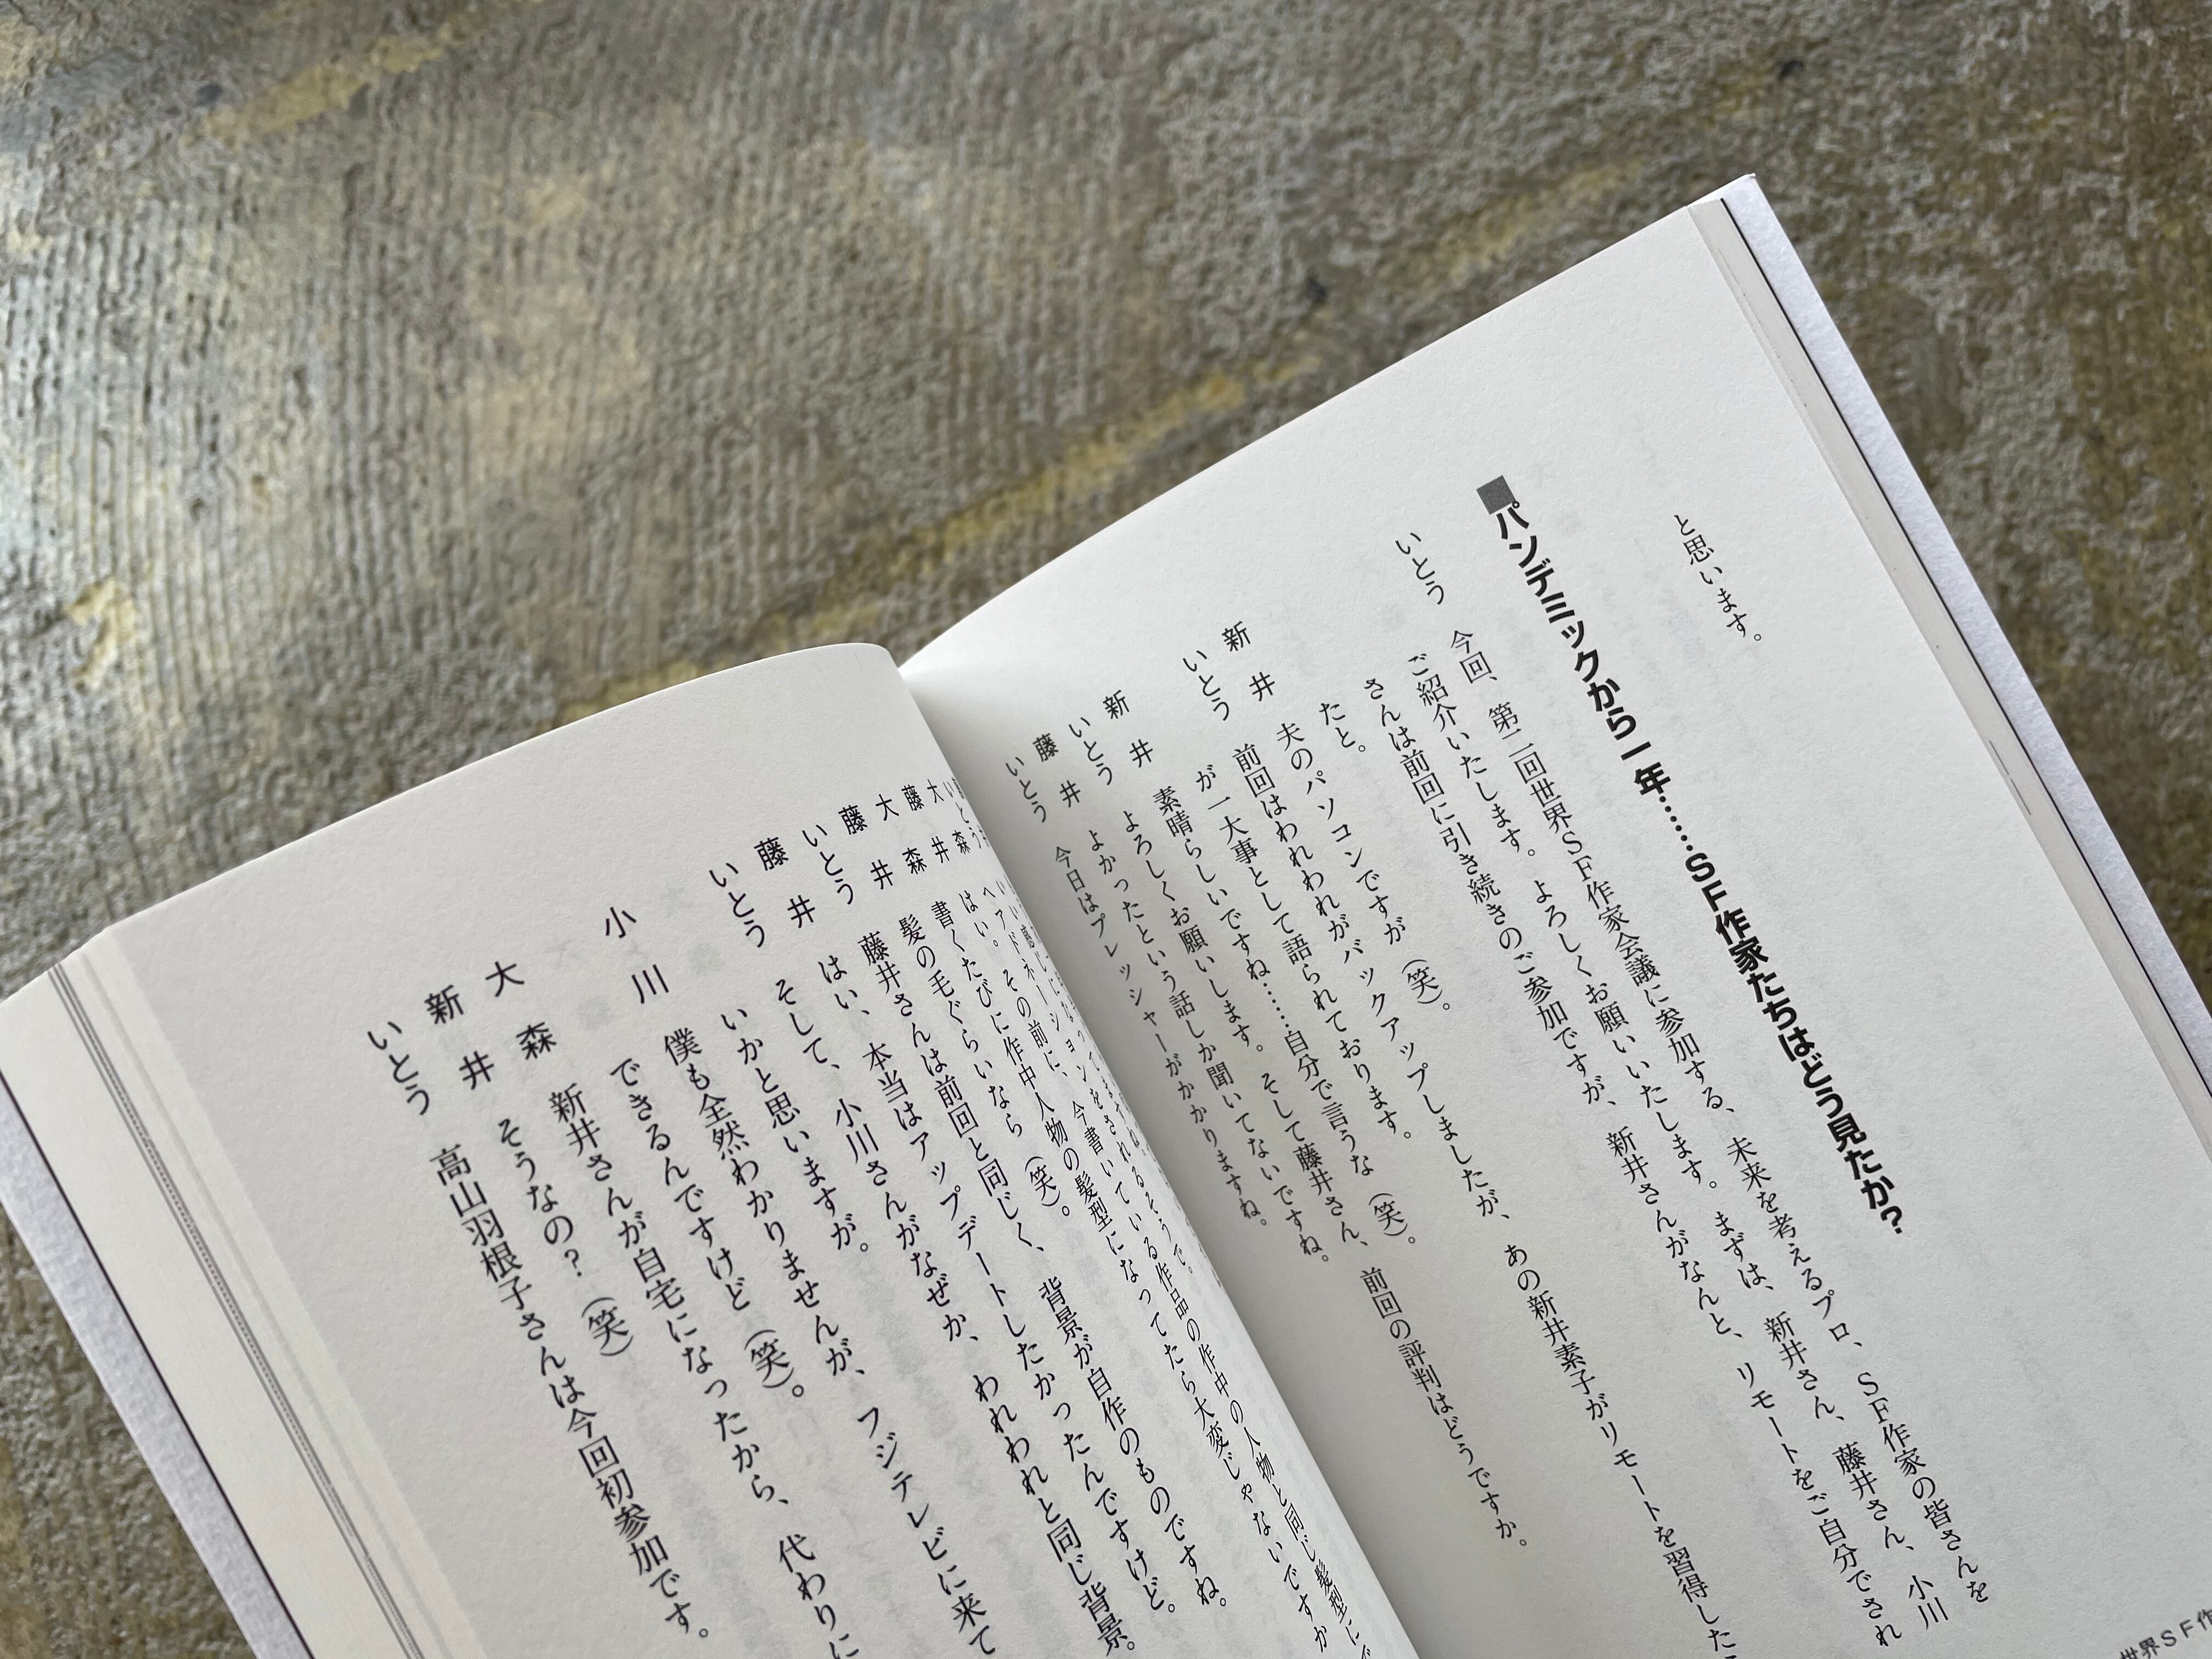 と思います。
■パンデミックから一年……SF作家たちはどう見たか?
いとう 今回、第二回世界SF作家会議に参加する、未来を考えるプロ、SF作家の皆さんを
ご紹介いたします。よろしくお願いいたします。まずは、新井さん、藤井さん、小川
さんは前回に引き続きのご参加ですが、新井さんがなんと、リモートをご自分でされ
たと。
新井 夫のパソコンですが(笑)。
いとう 前回はわれわれがバックアップしましたが、あの新井素子がリモートを習得した
が一大事として語られております。
新井 素晴らしいですね……自分で言うな(笑)。
いとう よろしくお願いします。そして藤井さん、前回の評判はどうですか。
藤井 よかったという話しか聞いてないですね。
いとう 今日はプレッシャーがかかりますね。
ヘアドネーションをされるそうで。
大森 はい。その前に、今書いている作品の作中の人物と同じ髪型にで
藤井 書くたびに作中人物の髪型になってたら大変じゃないですか
大森 髪の毛ぐらいなら(笑)。
藤井さんは前回と同じく、背景が自作のものですね。
藤井 はい、本当はアップデートしたかったんですけど。
いとう そして、小川さんがなぜか、われわれと同じ背景。
いかと思いますが。
小川 僕も全然わかりませんが、フジテレビに来て
できるんですけど(笑)。
大森 新井さんが自宅になったから、代わりに
新井 そうなの?(笑)
いとう 高山羽根子さんは今回初参加です。
世界SF作